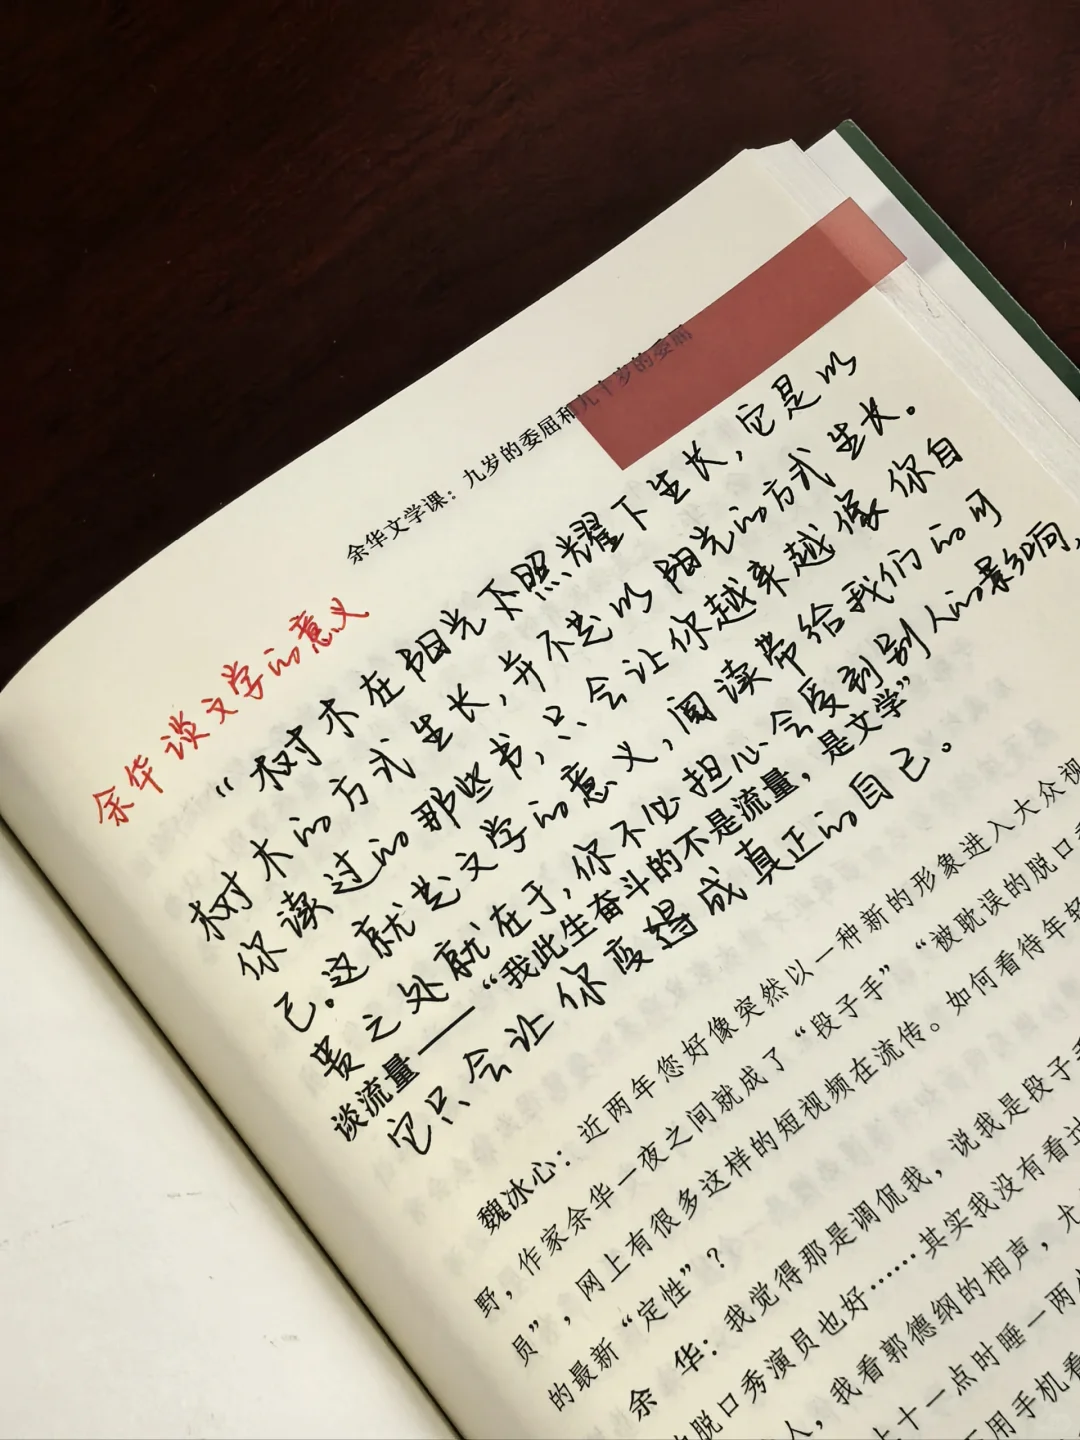 余华文学课：九岁的委屈和九十岁的委屈
余华谈文学的意义
“树木在阳光下照耀下生长，它是以
树木的方式生长，并不是以阳光的方式生长。
你读过的那些书，只会让你越来越像你自
己。这就是文学的意义，阅读带给我们的可
贵之处就在于，你不必担心会受到别人的影响，
谈流量——“我此生奋斗的不是流量，是文学”
它只会让你变得成真正的自己。
魏冰心：近两年您好像突然以一种新的形象进入大众视
野，作家余华一夜之间就成了“段子手”“被耽误的脱口秀
员”，网上有很多这样的短视频在流传。如何看待年轻
的最新“定性”？
余 华：我觉得那是调侃我，说我是段子手
脱口秀演员也好……其实我没有看过
人，我看郭德纲的相声，尤
十一点时睡一两
用手机看